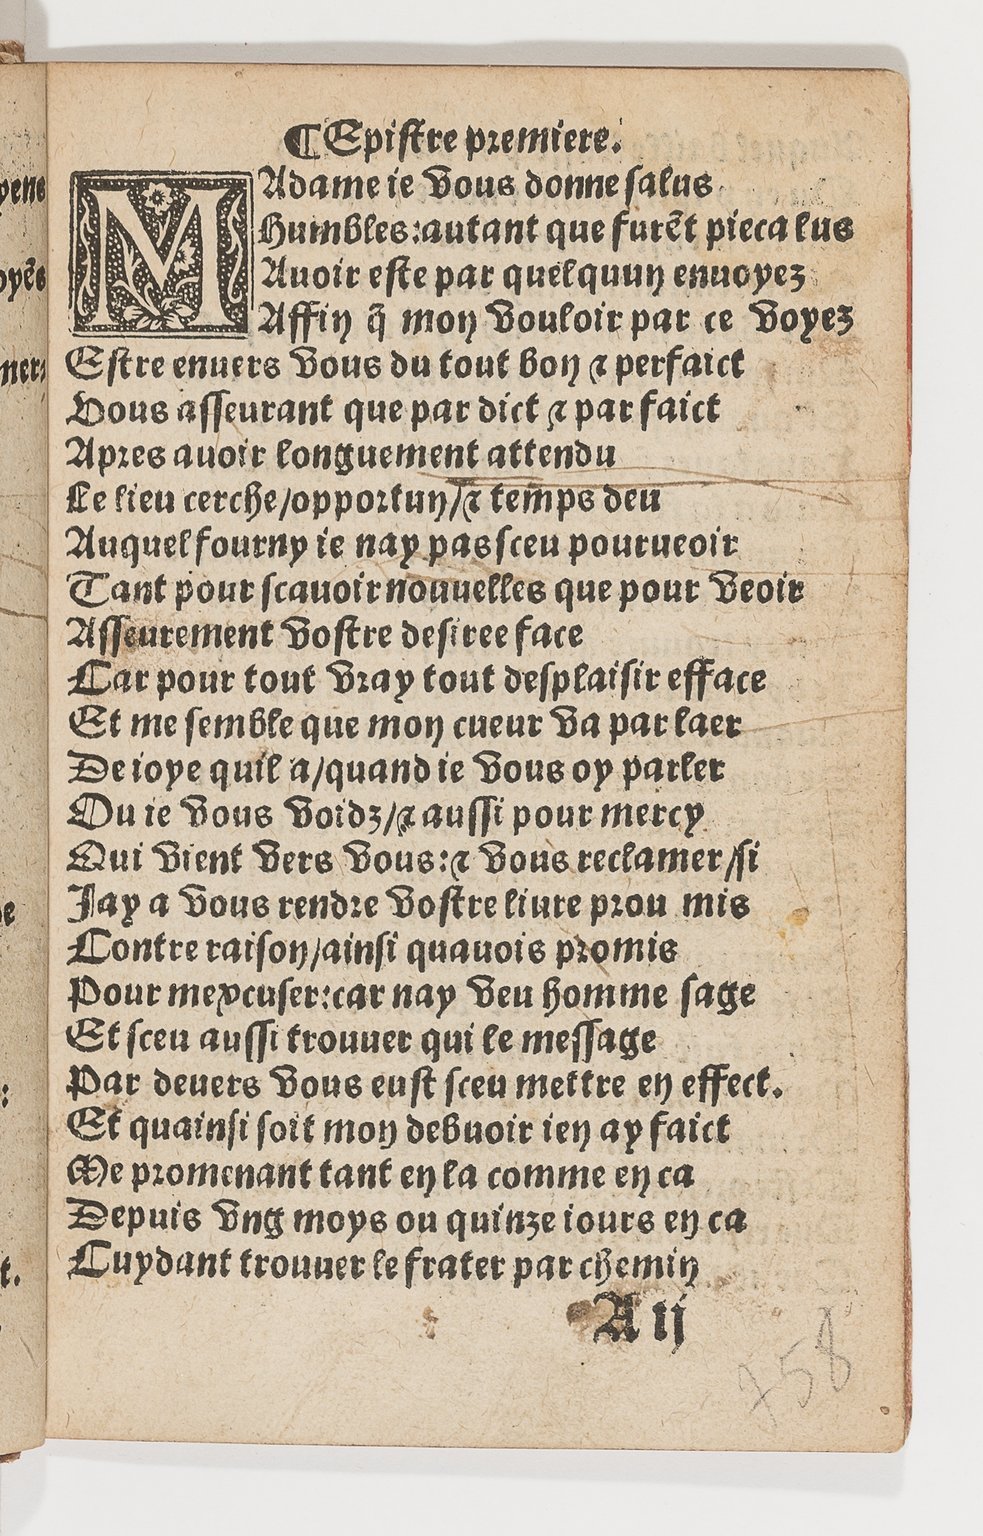 ¶Epistre premiere.
MAdame ie vous donne salus
Humbles:autant que furẽt pieca lus
Auoir este par quelquun enuoyez
Affin q̃ mon vouloir par ce voyez
Estre enuers vous du tout bon ⁊ perfaict
Vous asseurant que par dict ⁊ par faict
Apres auoir longuement attendu
Le lieu cerche/opportun/⁊ temps deu
Auquel fourny ie nay pas sceu pourueoir
Tant pour scauoir nouuelles que pour veoir
Asseurement vostre desiree face
Car pour tout vray tout desplaisir efface
Et me semble que mon cueur va par laer
De ioye quil a/quand ie vous oy parler
Ou ie vous voidz/⁊ aussi pour mercy
Qui vient vers vous:⁊ vous reclamer/si
Jay a vous rendre vostre liure prou mis
Contre raison/ainsi quauois promis
Pour mexcuser:car nay veu homme sage
Et sceu aussi trouuer qui le message
Par deuers vous eust sceu mettre en effect.
Et quainsi soit mon debuoir ien ay faict
Me promenant tant en la comme en ca
Depuis vng moys ou quinze iours en ca
Cuydant trouuer le frater par chemin
A ij
758